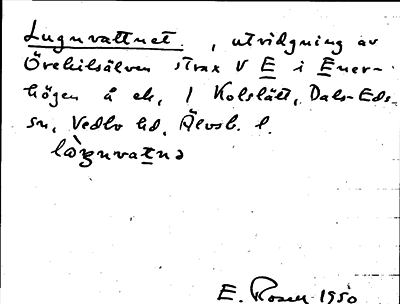 Lugnvattnet , utvidgning av
Örekilsälven strax V E i Ener-
högen å ek, 1 Kolslätt, Dals-Eds
sn, Vedbo hd, Älvsb. l.
E. Rosell 1950